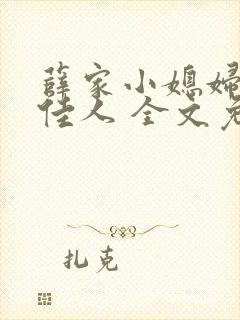 薛家小媳妇
佳人 全文免
扎克